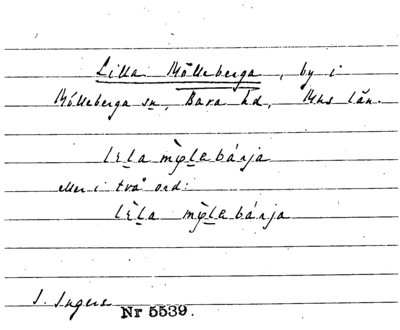 Lilla Mölleberga, by i
Mölleberga sn, Bara hd, Mhs län.
lɛla mø̀lebárja
eller i två ord:
lɛ̀la mø̀lebárja
S. Ingers
Nr 5539.